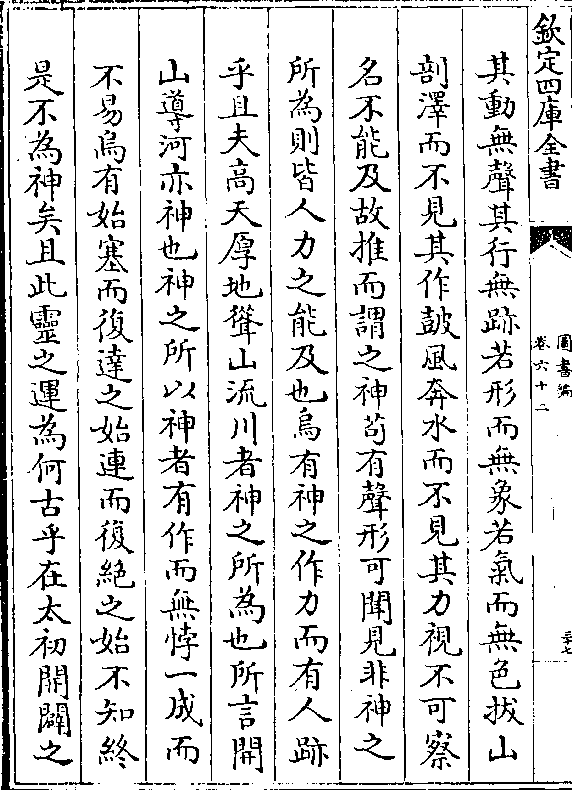 欽定四庫全書
圖書編
卷六十二
三十七
其動無聲其行無跡若形而無象若氣而無色拔山
剖澤而不見其作鼓風奔水而不見其力視不可察
名不能及故推而謂之神苟有聲形可聞見非神之
所為則皆人力之能及也烏有神之作力而有人跡
乎且夫高天厚地聳山流川者神之所為也所言開
山導河亦神也神之所以神者有作而無悖一成而
不易烏有始塞而復達之始連而復絕之始不知終
是不為神矣且此靈之運為何古乎在太初開闢之